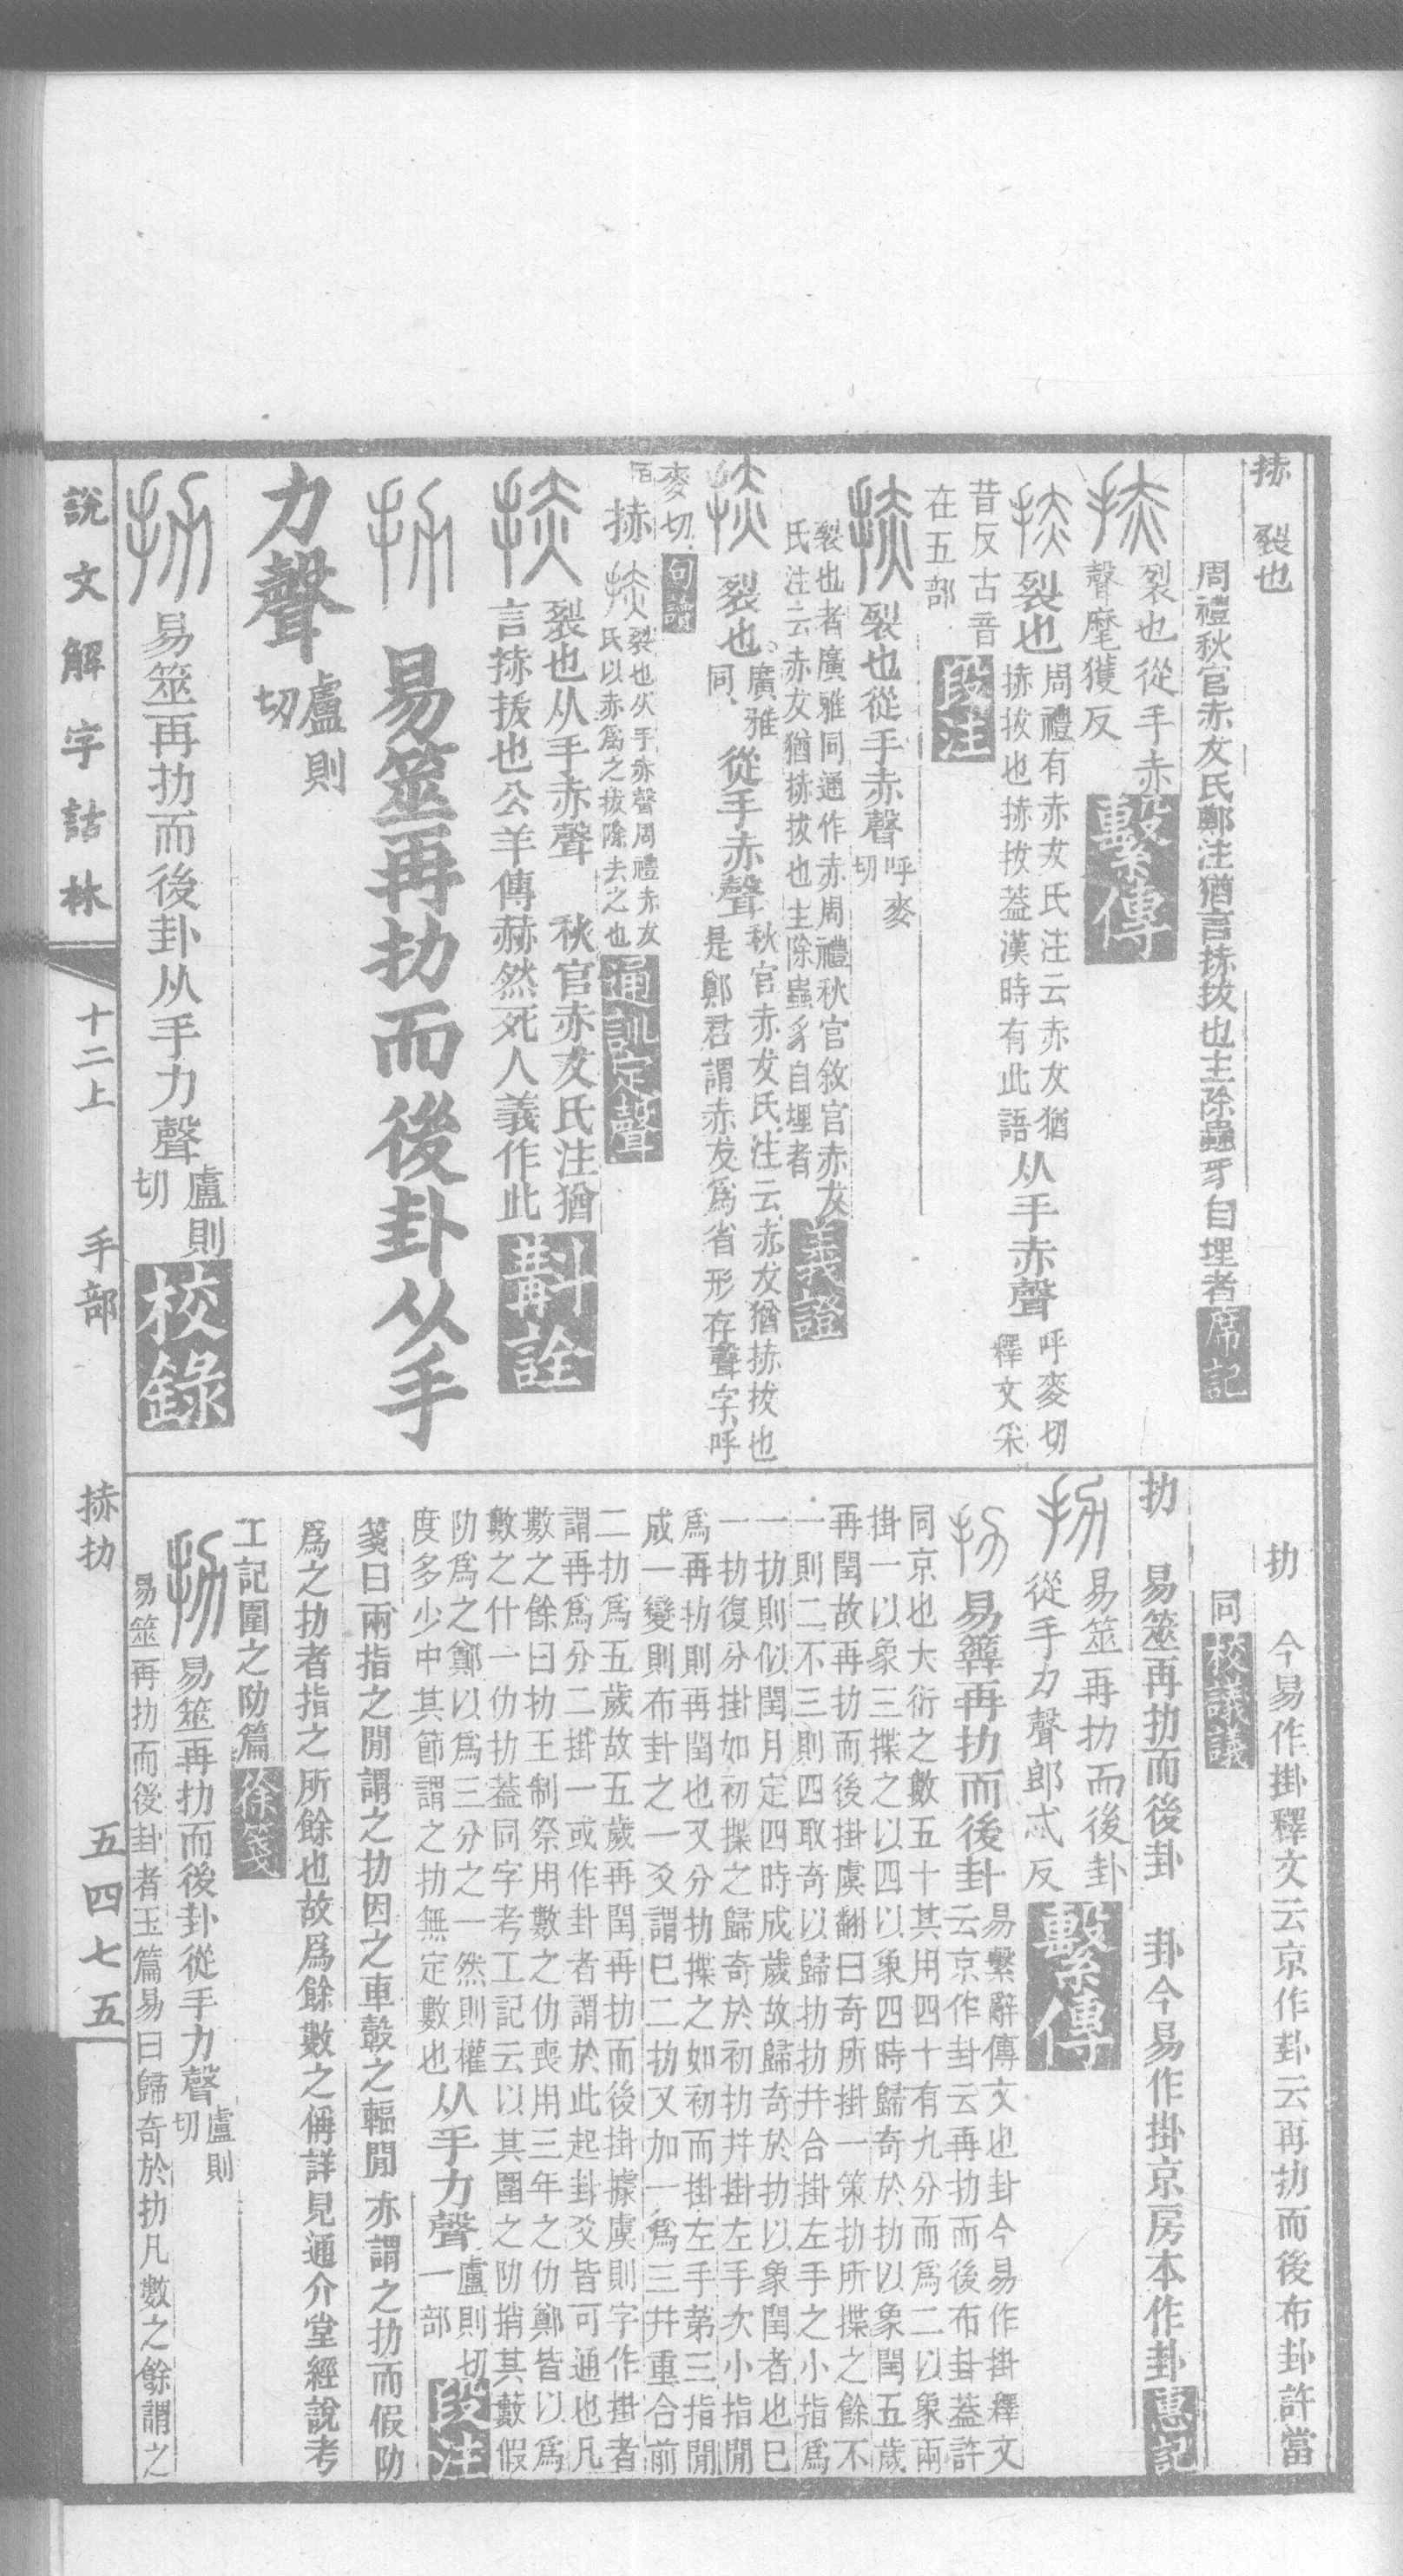 捇 裂也
周禮秋官赤犮氏鄭注猶言捇拔也主除蟲豸自埋者 席記
捇 裂也從手赤
聲麾獲反 繫傳
捇 裂也 周禮有赤犮氏注云赤犮猶
捇拔也捇拔蓋漢時有此語 从手赤聲 呼麥切
釋文采
昔反古音
在五部 段注
捇 裂也從手赤聲 呼麥
切
裂也者廣雅同通作赤周禮秋官敘官赤犮
氏注云赤犮猶捇拔也主除蟲豸自埋者 義證
捇 裂也 廣雅
同 從手赤聲 秋官赤犮氏注云赤犮猶捇拔也
是鄭君謂赤犮爲省形存聲字呼
麥切 句讀
捇 裂也从手赤聲周禮赤犮
氏以赤爲之拔除去之也 通訓定聲
捇 裂也从手赤聲 秋官赤犮氏注猶
言捇拔也公羊傳赫然死人義作此 斠詮
扐 易筮再扐而後卦从手
力聲 盧則
切
扐 易筮再扐而後卦从手力聲 盧則
切 校錄
扐 今易作掛釋文云京作卦云再扐而後布卦許當
同 校議議
扐 易筮再扐而後卦 卦今易作掛京房本作卦 惠記
扐 易筮再扐而後卦
從手力聲郎忒反 繫傳
扐 易簭再扐而後卦 易繫辭傳文也卦今易作掛釋文
云京作卦云再扐而後布卦蓋許
同京也大衍之數五十其用四十有九分而爲二以象兩
掛一以象三揲之以四以象四時歸奇於扐以象閏五歲
再閏故再扐而後掛虞翻曰奇所掛一策扐所揲之餘不
一則二不三則四取奇以歸扐扐幷合掛左手之小指爲
一扐則似閏月定四時成歲故歸奇於扐以象閏者也巳
一扐復分掛如初揲之歸奇於初扐幷掛左手次小指閒
爲再扐則再閏也又分扐揲之如初而掛左手第三指閒
成一變則布卦之一爻謂巳二扐又加一爲三幷重合前
二扐爲五歲故五歲再閏再扐而後掛據虞則字作掛者
謂再爲分二掛一或作卦者謂於此起卦爻皆可通也凡
數之餘曰扐王制祭用數之仂喪用三年之仂鄭皆以爲
數之什一仂扐蓋同字考工記云以其圍之阞捎其藪假
阞爲之鄭以爲三分之一然則權
度多少中其節謂之扐無定數也 从手力聲 盧則切
一部 段注
箋曰兩指之閒謂之扐因之車轂之輻閒亦謂之扐而假阞
爲之扐者指之所餘也故爲餘數之偁詳見通介堂經說考
工記圍之阞篇 徐箋
扐 易筮再扐而後卦從手力聲 盧則
切
易筮再扐而後卦者玉篇易曰歸奇於扐凡數之餘謂之
說文解字詁林 十二上 手部 捇扐 五四七五